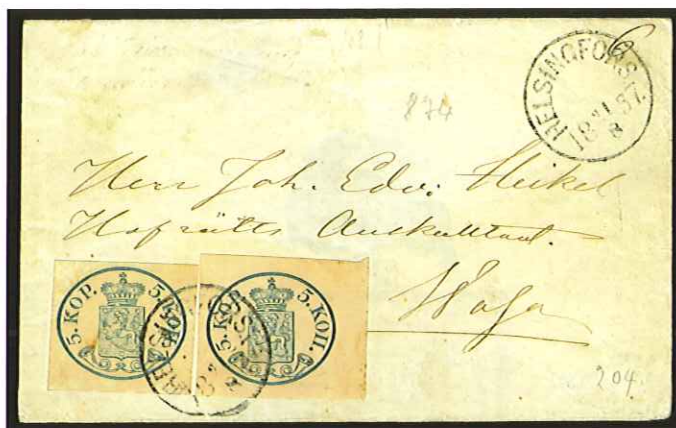 6
HELSINGFORS
18 21/8 57.
874
Herr Joh. Edv: Heikel
Hofrätts Auskultant.
Wasa
5. KOP. 5. KOP. 5. KOP. 5. КОП.
204.